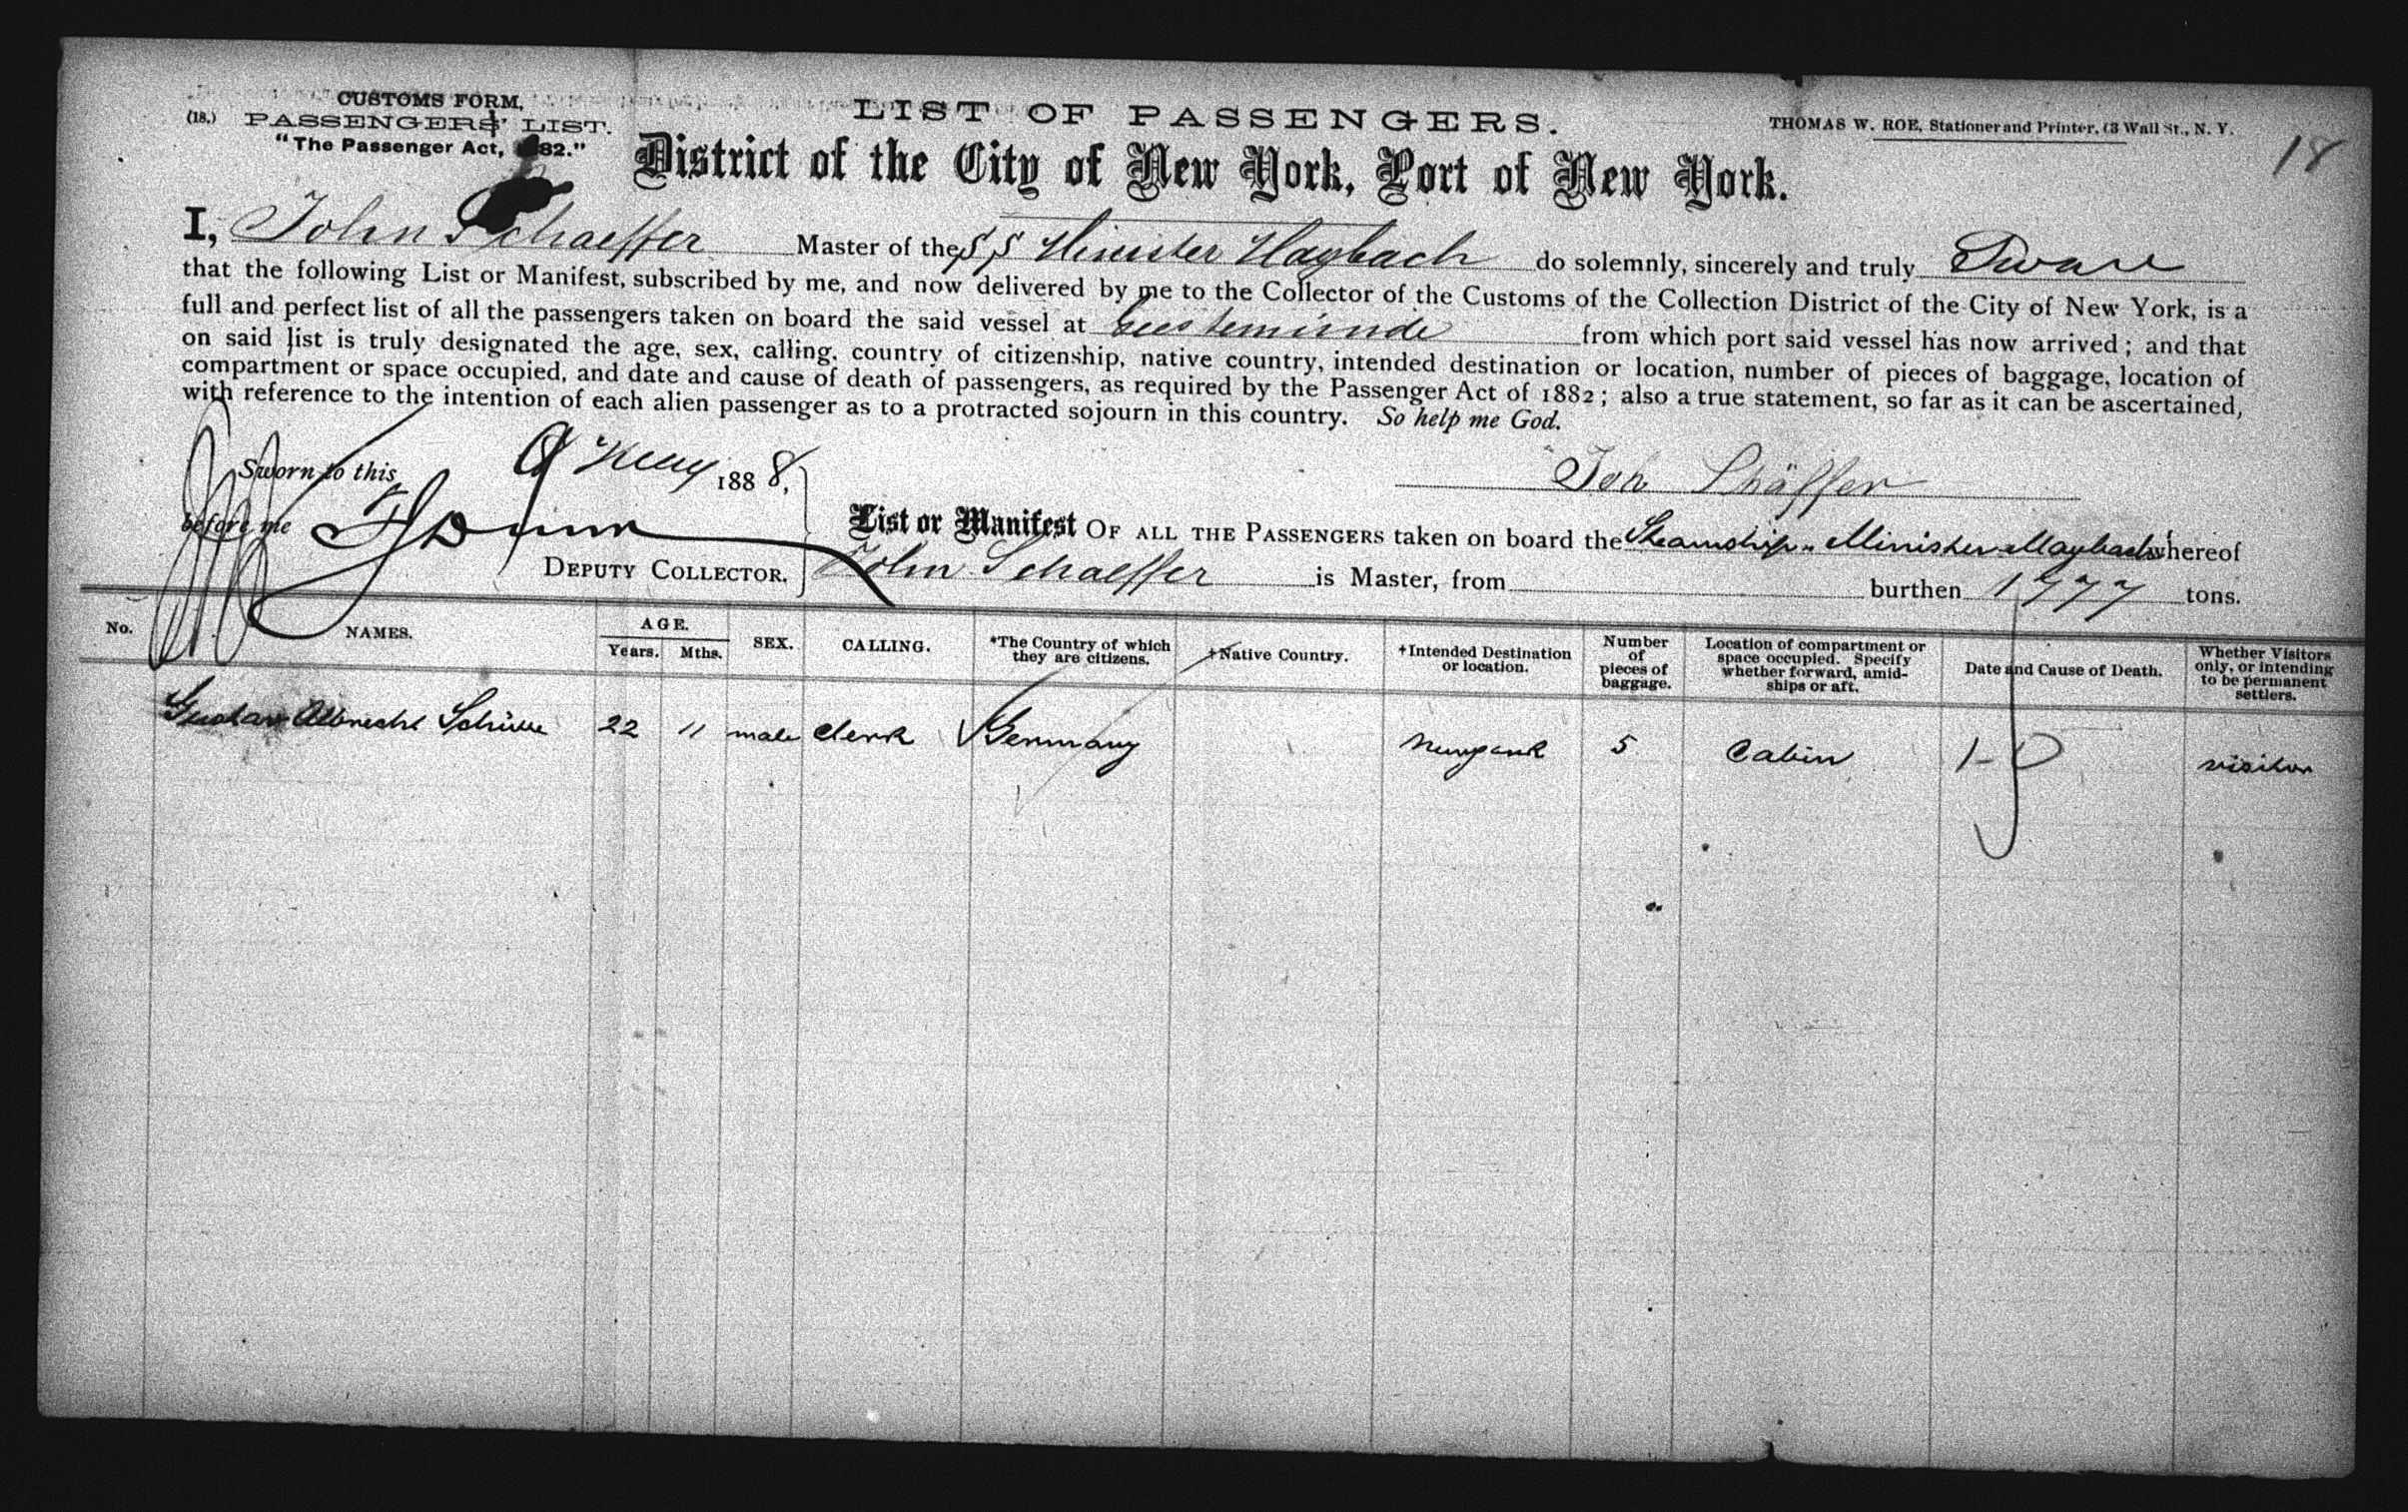 CUSTOMS FORM,
(18.) PASSENGERS' LIST.
"The Passenger Act, 82."
LIST OF PASSENGERS.
THOMAS W. ROE, Stationer and Printer, 63 Wall St., N. Y.
18
District of the City of New York, Port of New York.
I, John Schaeffer Master of the SS Minister Maybach do solemnly, sincerely and truly Swear
that the following List or Manifest, subscribed by me, and now delivered by me to the Collector of the Customs of the Collection District of the City of New York, is a
full and perfect list of all the passengers taken on board the said vessel at Geestemünde from which port said vessel has now arrived; and that
on said list is truly designated the age, sex, calling, country of citizenship, native country, intended destination or location, number of pieces of baggage, location of
compartment or space occupied, and date and cause of death of passengers, as required by the Passenger Act of 1882; also a true statement, so far as it can be ascertained,
with reference to the intention of each alien passenger as to a protracted sojourn in this country. So help me God.
Sworn to this 9 May 1888,
Joh Schäffer
before me
DEPUTY COLLECTOR.
List or Manifest OF ALL THE PASSENGERS taken on board the Steamship "Minister Maybach" whereof
John Schaeffer is Master, from burthen 1977 tons.
No. NAMES. AGE. Years. Mths. SEX. CALLING. *The Country of which they are citizens. †Native Country. †Intended Destination or location. Number of pieces of baggage. Location of compartment or space occupied. Specify whether forward, amidships or aft. Date and Cause of Death. Whether Visitors only, or intending to be permanent settlers.
Gustav Albrecht 22 11 male clerk Germany Newyork 5 Cabin visitor